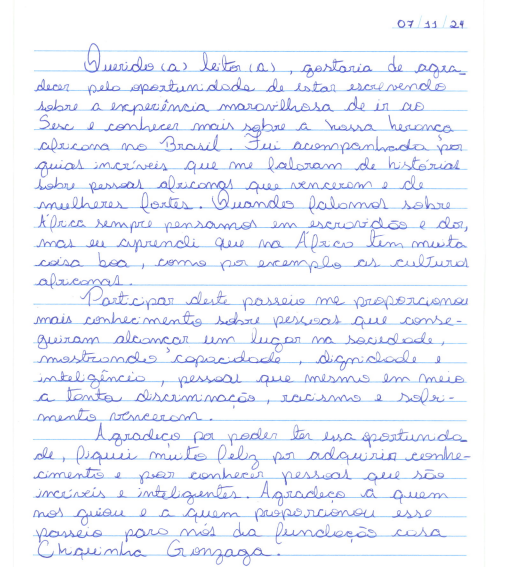 07/11/24
Querido(a) leitor(a), gostaria de agra-
decer pela oportunidade de estar escrevendo
sobre a experiência maravilhosa de ir ao
Sesc e conhecer mais sobre a nossa herança
africana no Brasil. Fui acompanhada por
guias incríveis que me falaram de histórias
sobre pessoas africanas que venceram e de
mulheres fortes. Quando falamos sobre
África sempre pensamos em escravidão e dor,
mas eu aprendi que na África tem muita
coisa boa, como por exemplo as culturas
africanas.
Participar deste passeio me proporcionou
mais conhecimento sobre pessoas que conse-
guiram alcançar um lugar na sociedade,
mostrando capacidade, dignidade e
inteligência, pessoas que mesmo em meio
a tanta discriminação, racismo e sofri-
mento venceram.
Agradeço por poder ter essa oportunida
de, fiquei muito feliz por adquirir conhe-
cimento e por conhecer pessoas que são
incríveis e inteligentes. Agradeço a quem
nos guiou e a quem proporcionou esse
passeio para nós da fundação casa
Chiquinha Gonzaga.